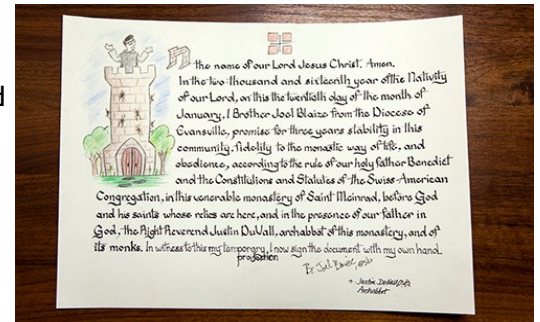 d
In the name of our Lord Jesus Christ. Amen.
In the two-thousand and sixteenth year of the Nativity
of our Lord, on this the twentieth day of the month of
January, I Brother Joel Blaize from the Diocese of
Evansville, promise for three years stability in this
community, fidelity to the monastic way of life, and
obedience, according to the rule of our holy father Benedict
and the Constitutions and Statutes of the Swiss-American
Congregation, in this venerable monastery of Saint Meinrad, before God
and his saints whose relics are here, and in the presence of our father in
God, the Right Reverend Justin DuVall, archabbot of this monastery, and of
its monks. In witness to this my temporary profession, I now sign the document with my own hand.
Br. Joel Blaize, OSB
+ Justin DuVall, OSB
Archabbot